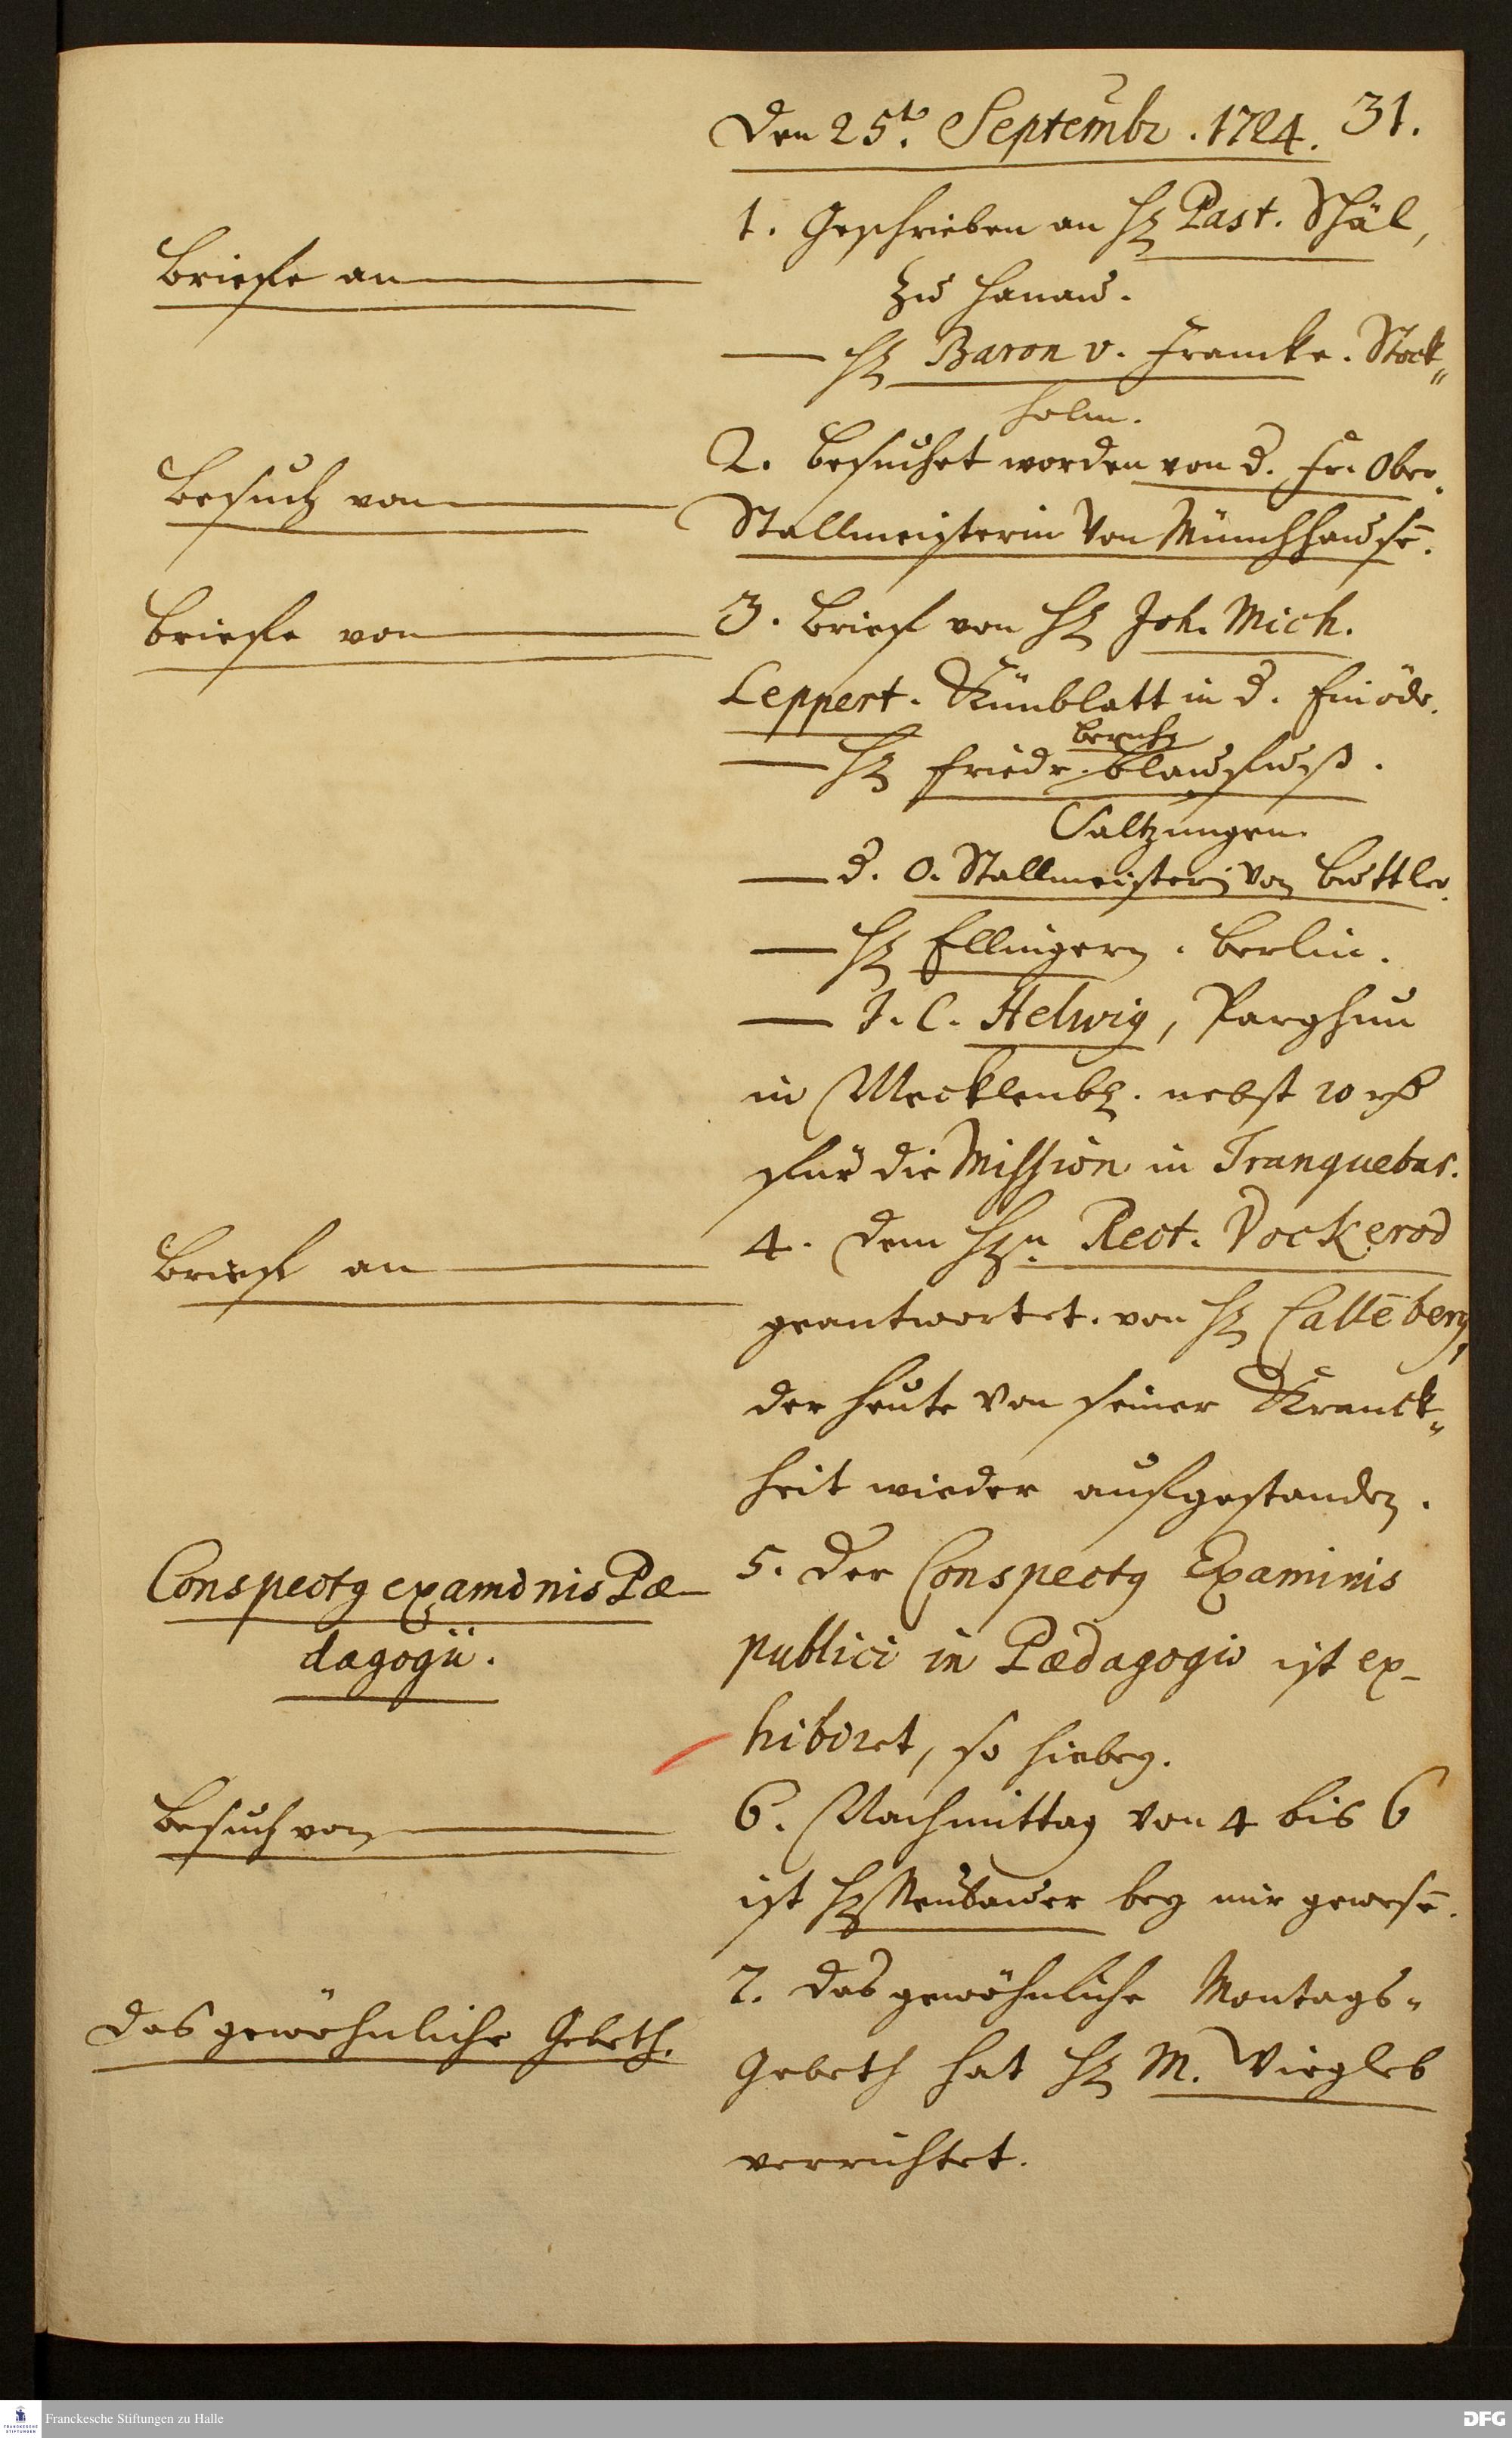 31.
Den 25.t. Septembr. 1724.
1. Geschrieben an H. Past. Schäl,
Briefe an
zu Hanau.
— H. Baron v. Francke. Stock„
holm.
2. Besuchet worden von d. Fr. Ober„
Besuch von
Stallmeisterin von Münchhausē.
Briefe von
3. Brief von H. Joh. Mich.
Leppert. Künblatt in d. Einöde.
— H. Friedr. Bernh. Blaufuß.
Saltzungen.
— d. O. Stallmeisterin von Buttler.
— H. Ellingern. Berlin.
— J. C. Helwig, Parchim
in Mecklenb. nebst 10 rth
für die Mission in Tranquebar.
Brief an
4. Dem Hn. Rect. Vockerod
geantwortet. von H. Callēberg,
der heute von seiner Kranck„
heit wieder aufgestanden.
Conspectus examinis Pæ-
dagogii.
5. Der Conspectus Examinis
publici in Pædagogio ist ex-
hibiret, so hiebey.
Besuch von
6. Nachmittag von 4 bis 6
ist H. Neubauer bey mir gewesē.
Das gewöhnliche Gebeth.
7. Das gewöhnliche Montags„
Gebeth hat H. M. Wiegleb
verrichtet.
FRANCKESCHE
STIFTUNGEN
Franckesche Stiftungen zu Halle
DFG